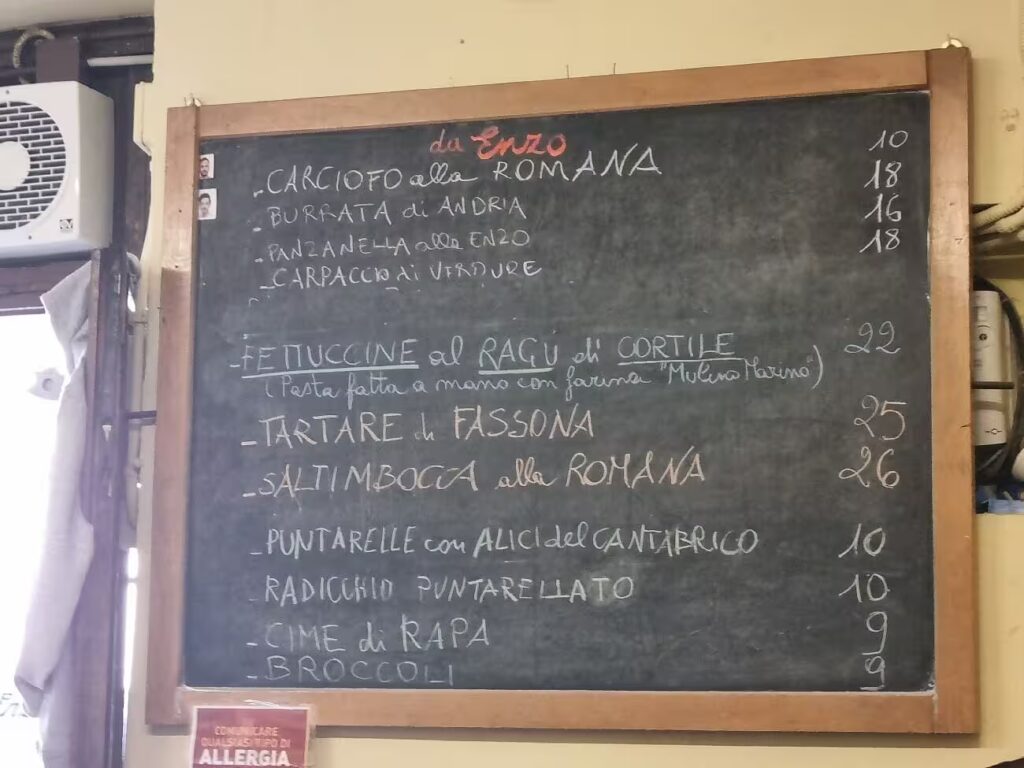 da Enzo
- CARCIOFO alla ROMANA 10
- BURRATA di ANDRIA 18
- PANZANELLA alla ENZO 16
- CARPACCIO di VERDURE 18
- FETTUCCINE al RAGU di CORTILE 22
(Pasta fatta a mano con farina "Mulino Marino")
- TARTARE di FASSONA 25
- SALTIMBOCCA alla ROMANA 26
- PUNTARELLE con ALICI del CANTABRICO 10
- RADICCHIO PUNTARELLATO 10
- CIME di RAPA 9
- BROCCOLI 9
COMUNICARE
QUALSIASI TIPO DI
ALLERGIA